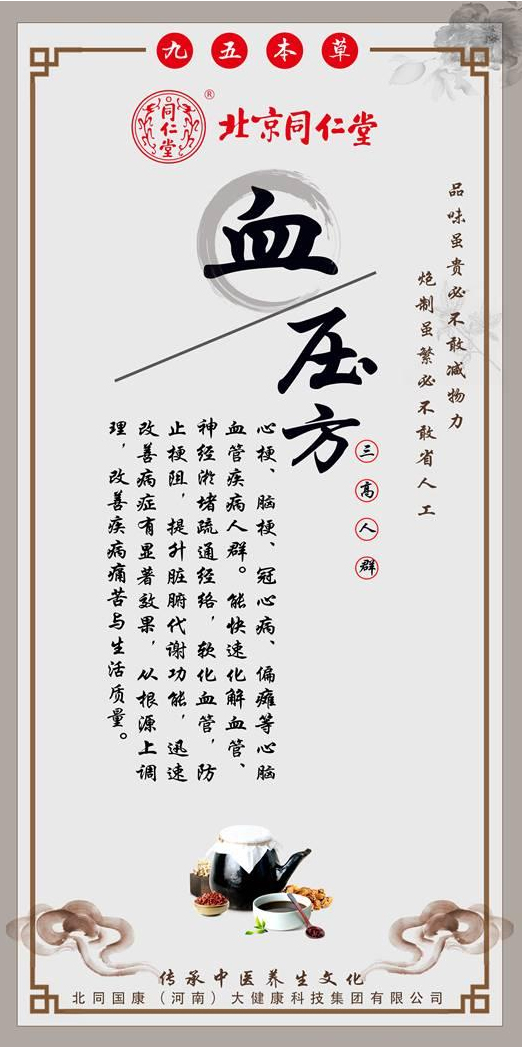 九五本草
同仁堂
®
北京同仁堂
品味虽贵必不敢减物力
炮制虽繁必不敢省人工
血压方
三高人群
心梗、脑梗、冠心病、偏瘫等心脑
血管疾病人群。能快速化解血管、
神经淤堵疏通经络，软化血管，防
止梗阻，提升脏腑代谢功能，迅速
改善病症有显著效果，从根源上调
理，改善疾病痛苦与生活质量。
传承中医养生文化
北同国康（河南）大健康科技集团有限公司